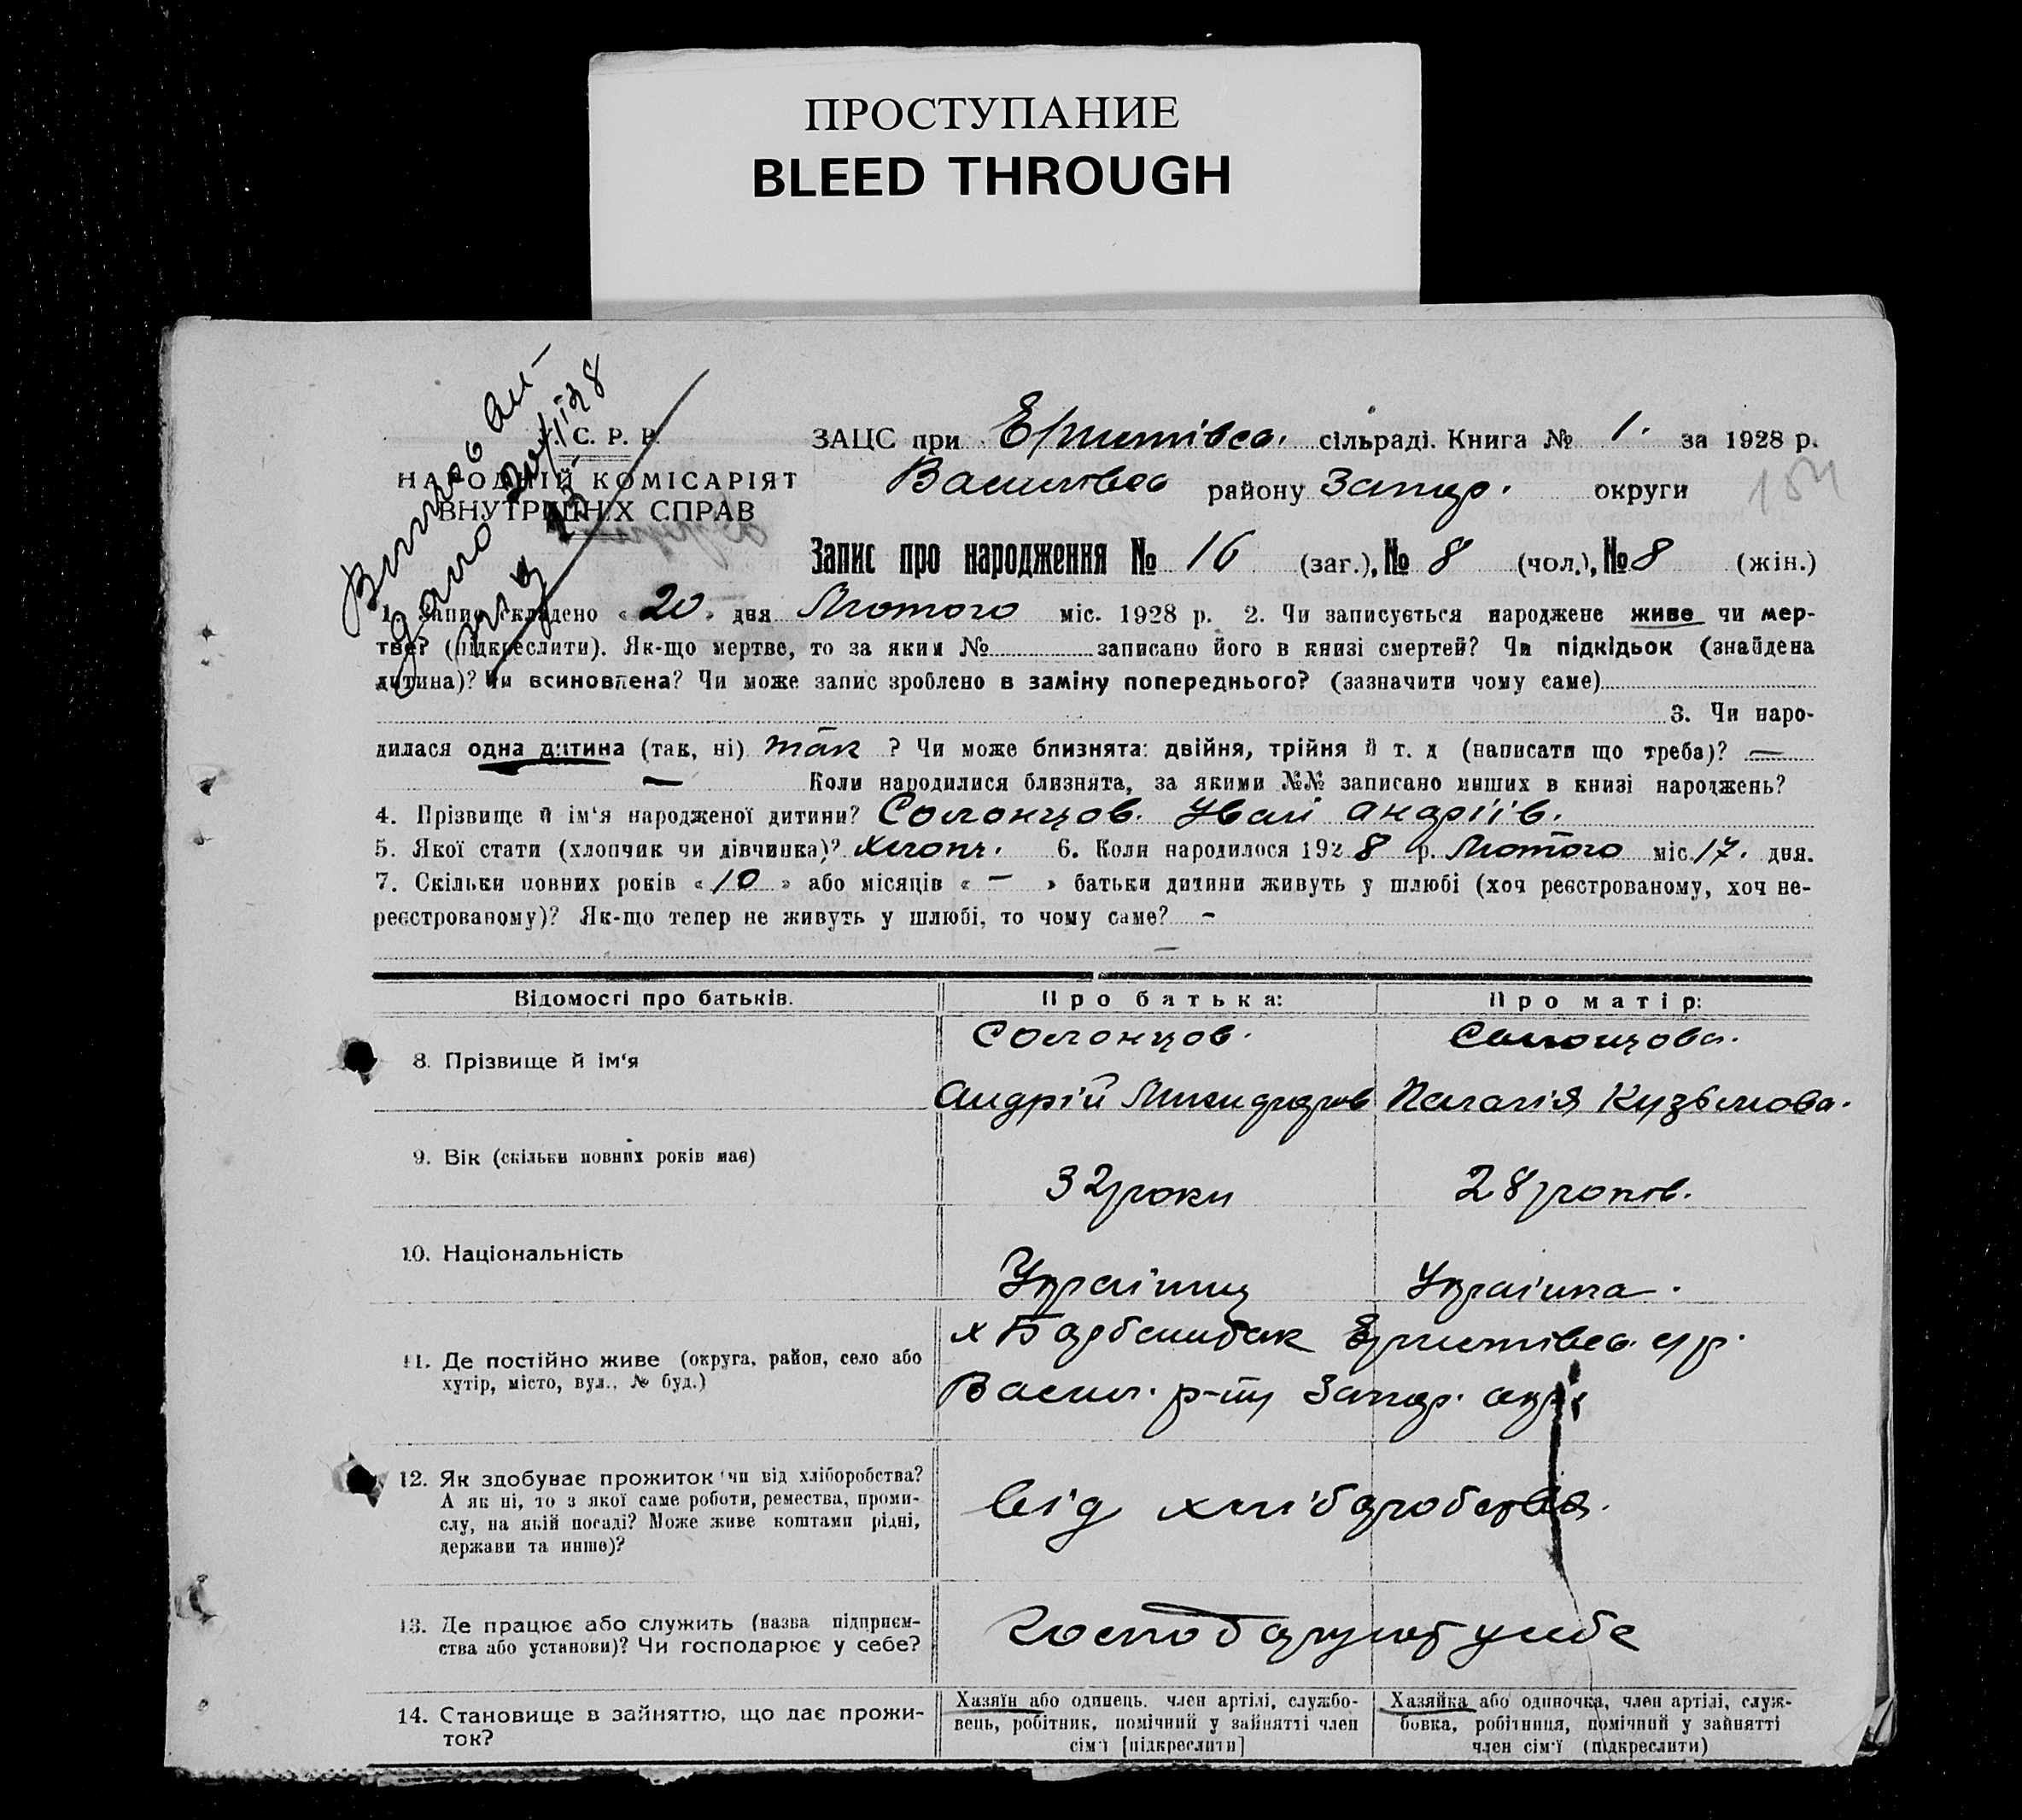 ПРОСТУПАНИЕ
BLEED THROUGH
С. Р. Р.
НАРОДНІЙ КОМІСАРІЯТ
ВНУТРІШНІХ СПРАВ
ЗАЦС при сільраді. Книга № 1. за 1928 р.
району Запор. округи
Запис про народження № 16 (заг.), № 8 (чол.), № 8 (жін.)
1. Запис складено « 20 » дня Лютого міс. 1928 р. 2. Чи записується народжене живе чи мер-
тве? (підкреслити). Як-що мертве, то за яким № записано його в книзі смертей? Чи підкідьок (знайдена
дитина)? Чи всиновлена? Чи може запис зроблено в заміну попереднього? (зазначити чому саме)
3. Чи наро-
дилася одна дитина (так, ні) так ? Чи може близнята: двійня, трійня й т. д (написати що треба)? —
— Коли народилися близнята, за якими №№ записано инших в книзі народжень?
4. Прізвище й ім'я народженої дитини? Солонцов. Іван Андріїв.
5. Якої стати (хлопчик чи дівчинка)? хлопч. 6. Коли народилося 1928 р. Лютого міс. 17. дня.
7. Скільки повних років « 10 » або місяців « — » батьки дитини живуть у шлюбі (хоч реєстрованому, хоч не-
реєстрованому)? Як-що тепер не живуть у шлюбі, то чому саме? —
—
Відомості про батьків. Про батька: Про матір:
8. Прізвище й ім'я Солонцов. Солонцова.
Андрій Пелагія Кузьмова.
9. Вік (скільки повних років має) 32 роки 28 років.
10. Національність Українец Українка.
11. Де постійно живе (округа, район, село або
хутір, місто, вул., № буд.)
х с/р.
Васил. р-ну Запор. окр.
12. Як здобуває прожиток чи від хліборобства?
А як ні, то з якої саме роботи, ремества, проми-
слу, на якій посаді? Може живе коштами рідні,
держави та инше)?
від хліборобства.
13. Де працює або служить (назва підприєм-
ства або установи)? Чи господарює у себе?
господарюют у себе
14. Становище в зайняттю, що дає прожи-
ток?
Хазяїн або одинець. член артілі, службо-
вець, робітник, помічний у зайнятті член
сім'ї [підкреслити]
Хазяйка або одиночка, член артілі, служ-
бовка, робітниця, помічний у зайнятті
член сім'ї (підкреслити)